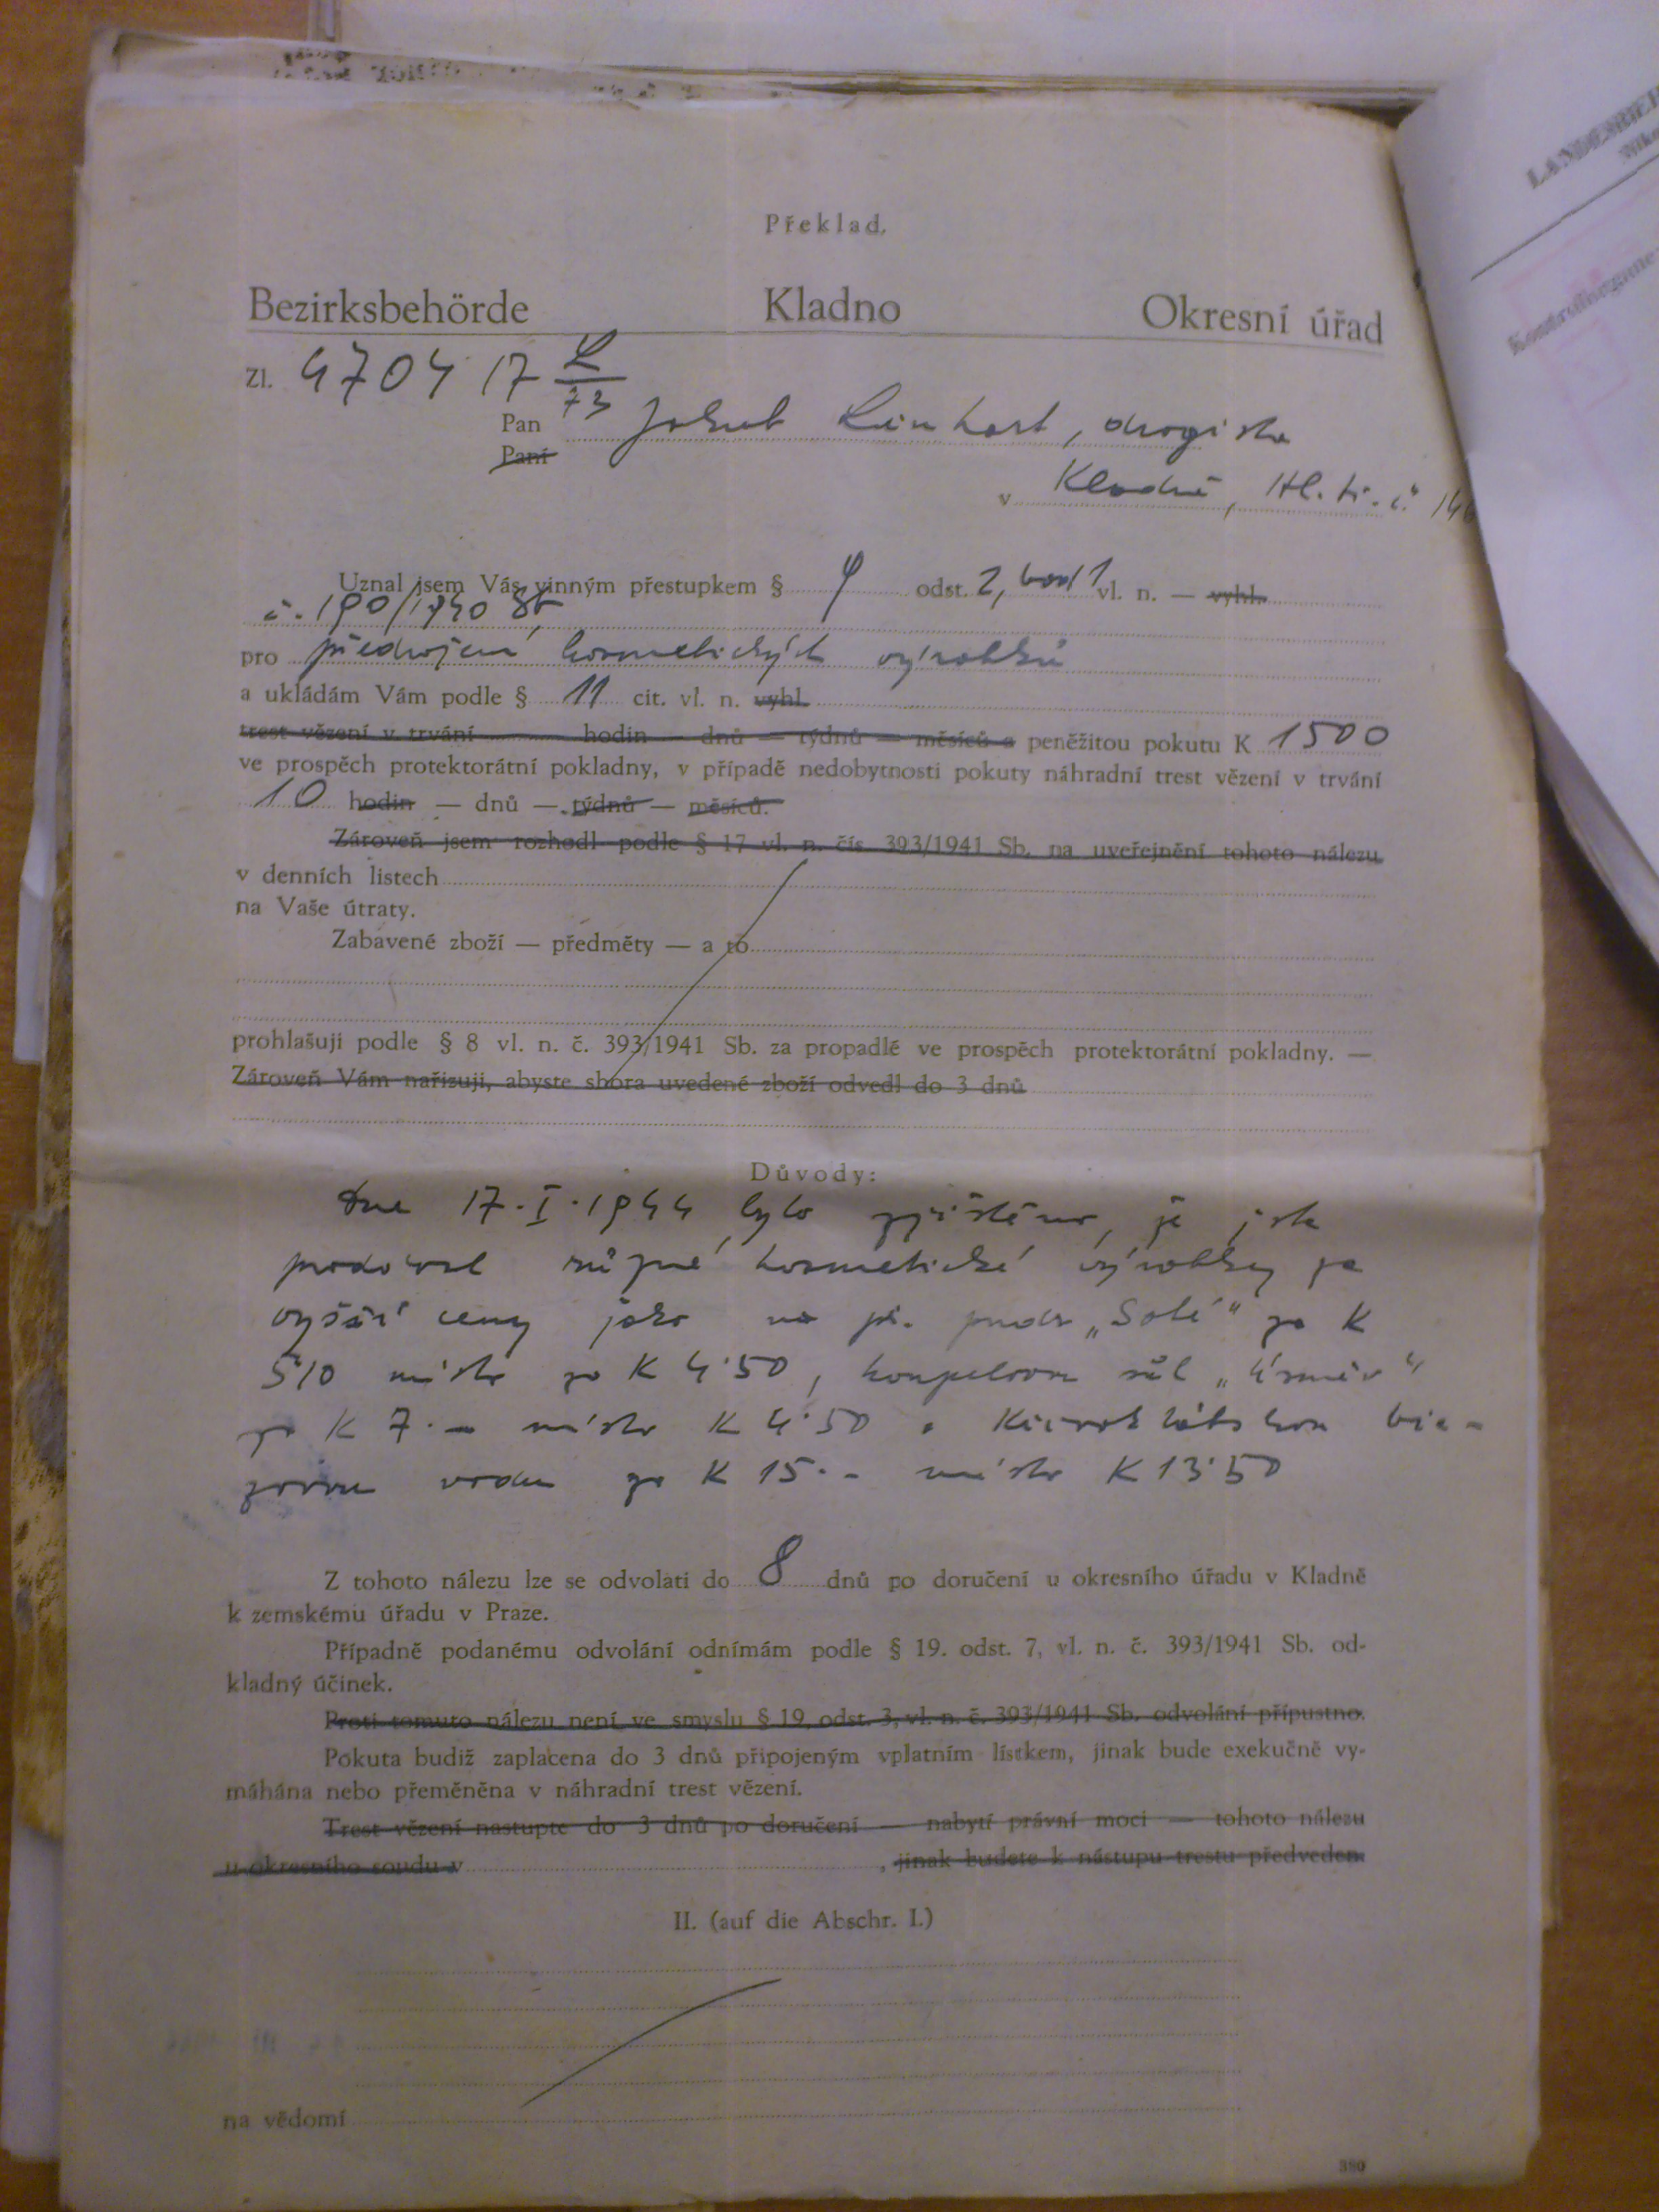 Překlad.
Bezirksbehörde Kladno Okresní úřad
Zl. 4704 17 L/73
Pan Jakub Linhart, drogista
Paní
v Kladně, Hl. tř. č.
Uznal jsem Vás vinným přestupkem § 4 odst. 2, bod 1 vl. n. — vyhl.
č. 190/1940 Sb.
pro předražení kosmetických výrobků
a ukládám Vám podle § 11 cit. vl. n. vyhl.
trest vězení v trvání hodin — dnů — týdnů — měsíců a peněžitou pokutu K 1500
ve prospěch protektorátní pokladny, v případě nedobytnosti pokuty náhradní trest vězení v trvání
10 hodin — dnů — týdnů — měsíců.
Zároveň jsem rozhodl podle § 17 vl. n. čís. 393/1941 Sb. na uveřejnění tohoto nálezu
v denních listech
na Vaše útraty.
Zabavené zboží — předměty — a to
prohlašuji podle § 8 vl. n. č. 393/1941 Sb. za propadlé ve prospěch protektorátní pokladny. —
Zároveň Vám nařizuji, abyste shora uvedené zboží odvedl do 3 dnů
Důvody:
Dne 17.I.1944 bylo zjištěno, že jste
prodával různé kosmetické výrobky za
vyšší ceny jako na př. pudr „Solé" za K
5'10 místo za K 4'50, koupelovou sůl „Úsměv"
za K 7.— místo K 4'50 a Křivoklátskou bře-
zovou vodu za K 15.- místo K 13'50
Z tohoto nálezu lze se odvolati do 8 dnů po doručení u okresního úřadu v Kladně
k zemskému úřadu v Praze.
Případně podanému odvolání odnímám podle § 19. odst. 7, vl. n. č. 393/1941 Sb. od-
kladný účinek.
Proti tomuto nálezu není ve smyslu § 19, odst. 3, vl. n. č. 393/1941 Sb. odvolání přípustno.
Pokuta budiž zaplacena do 3 dnů připojeným vplatním lístkem, jinak bude exekučně vy-
máhána nebo přeměněna v náhradní trest vězení.
Trest vězení nastupte do 3 dnů po doručení — nabytí právní moci — tohoto nálezu
u okresního soudu v , jinak budete k nástupu trestu předveden.
II. (auf die Abschr. I.)
na vědomí
380